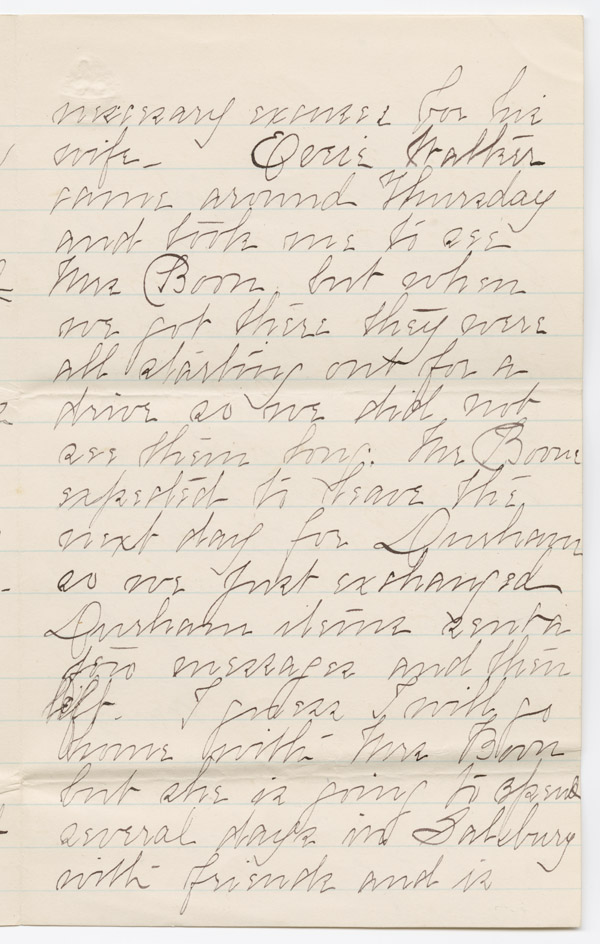 necessary excuses for his
wife. Essie Walker
came around Thursday
and took me to see
Mrs Boon, but when
we got there they were
all starting out for a
drive so we did not
see them long. Mr Boone
expected to leave the
next day for Durham
so we just exchanged
Durham items sent a
few messages and then
left. I guess I will go
home with Mrs Boon
but she is going to spend
several days in Salsbury
with friends and is